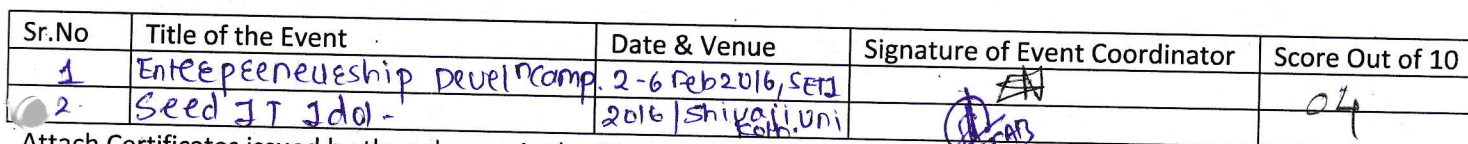 Sr.No Title of the Event Date & Venue Signature of Event Coordinator Score Out of 10
1 Enteepeeneueship Devel^n camp. 2-6 Feb 2016, SETI
2. Seed IT Idol - 2016 | Shivaji Uni Kolh. 04
Attach Certificates issued by the